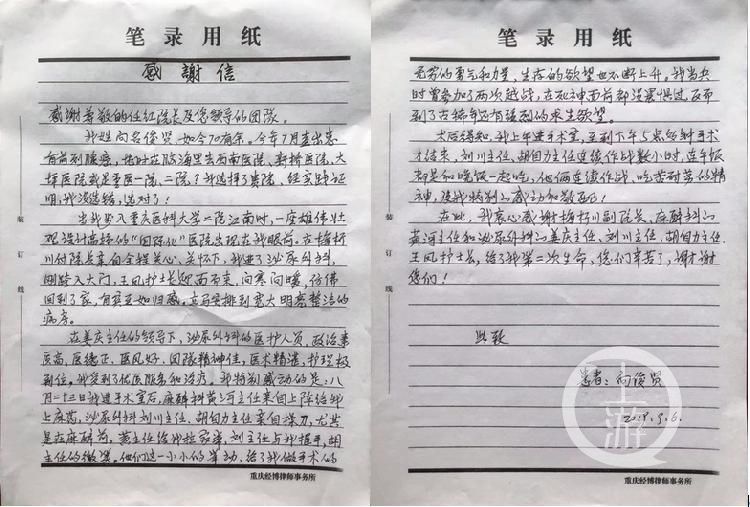 笔录用纸
感謝信
感谢尊敬的任红院长及您领导的团队。
我姓向名俊贤 如今70有余。今年7月查出患
有前列腺癌，
大坪医院或是重医一院、二院？我选择了贵院，经实践证
明，我没选错，选对了！
当我步入重庆医科大学二院江南时，一座雄伟壮
观设计高档的“国际化”医院出现在我眼前。在梅杯
川付院长亲自全程关心、关怀下，我进了泌尿外科，
刚踏入大门，王凤护士长迎面而来，问寒问暖，仿佛
回到了家，有宾至如归感。立马安排到宽大明亮整洁的
病房。
在姜庆主任的领导下，泌尿外科的医护人员，政治素
质高、医德正、医风好、团队精神佳，医术精湛，护理极
到位。我受到了优医服务和治疗。我特别感动的是：八
月二十三日我进手术室后，麻醉科黄河主任亲自上阵给我
上麻药，泌尿外科刘川主任、胡自力主任亲自操刀，尤其
是在麻醉前，黄主任给我拉家常，刘主任与我握手，胡
主任的微笑。他们这一小小的举动，给了我做手术的
重庆经博律师事务所
无穷的勇气和力量，生存的欲望也不断上升。我当兵
时曾参加了两次越战，在死神面前都没畏惧过，反而
到了古稀年还有强烈的求生欲望。
大后得知，我上午进手术室，直到下午5点多钟手术
才结束，刘川主任、胡自力主任连续作战数小时，连午饭
都是和晚饭一起吃，他俩连续作战、吃苦耐劳的精
神，使我特别的感动和敬佩！
在此，我衷心感谢梅杯川副院长、麻醉科的
黄河主任和泌尿外科的姜庆主任、刘川主任、胡自力主任、
王凤护士长，给了我第二次生命，您们辛苦了，谢谢
您们！
此致
患者：向俊贤
2019.9.6.
上游
重庆经博律师事务所
装
订
线